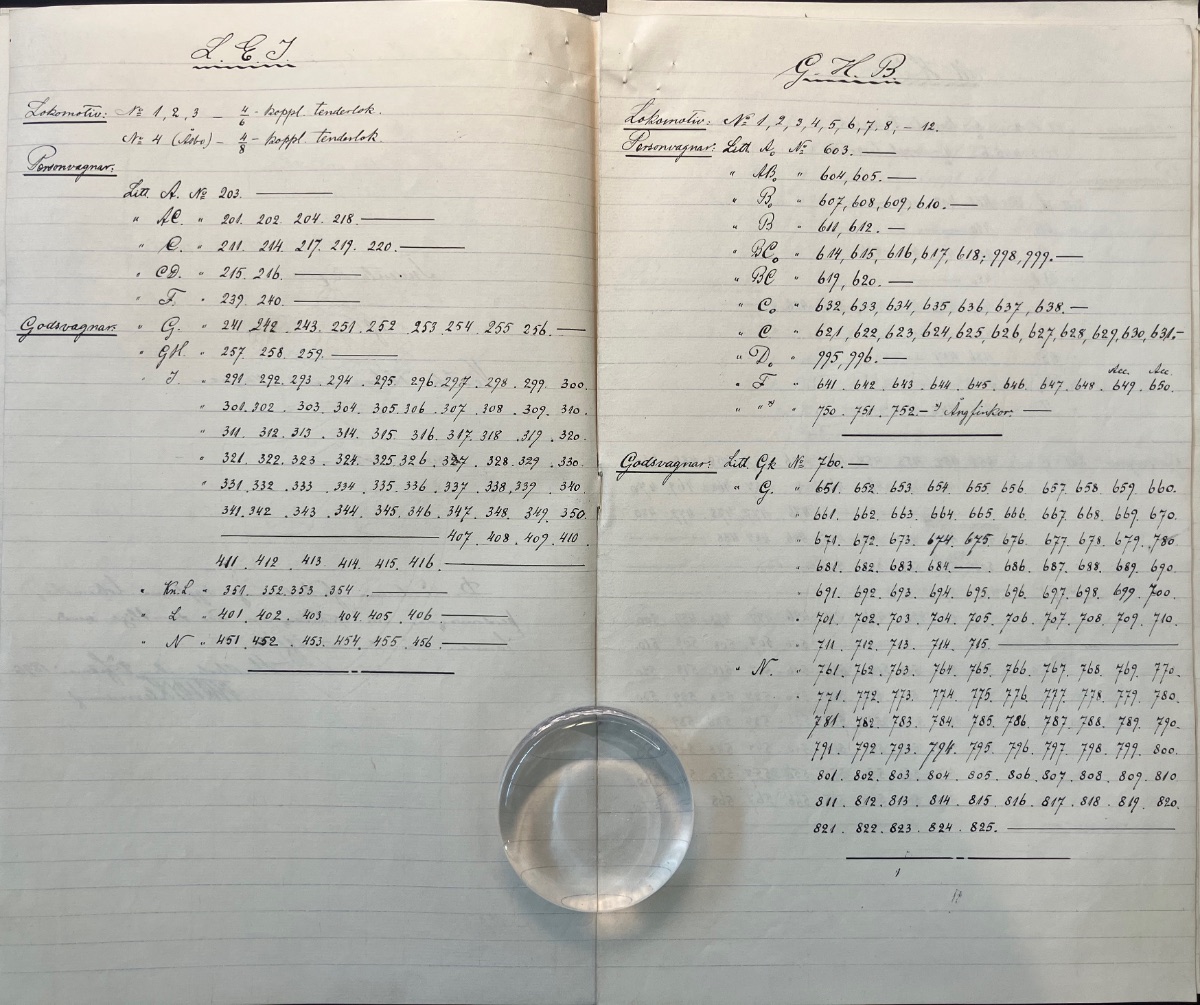 L. E. J.
Lokomotiv: № 1, 2, 3 — 4/6 - koppl. tenderlok.
№ 4 (Åsbo) — 4/8 - koppl. tenderlok.
Personvagnar:
Litt. A. № 203. ———
" AC. " 201. 202. 204. 218. ———
" C. " 211. 214. 217. 219. 220. ———
" CD. " 215. 216. ———
" F. " 239. 240. ———
Godsvagnar: " G. " 241. 242. 243. 251. 252. 253. 254. 255. 256. —
" GH. " 257. 258. 259. ———
" J. " 291. 292. 293. 294. 295. 296. 297. 298. 299. 300.
" 301. 302. 303. 304. 305. 306. 307. 308. 309. 310.
" 311. 312. 313. 314. 315. 316. 317. 318. 319. 320.
" 321. 322. 323. 324. 325. 326. 327. 328. 329. 330.
" 331. 332. 333. 334. 335. 336. 337. 338. 339. 340.
341. 342. 343. 344. 345. 346. 347. 348. 349. 350.
——— 407. 408. 409. 410.
411. 412. 413. 414. 415. 416. ———
" Kn.L " 351. 352. 353. 354. ———
" L " 401. 402. 403. 404. 405. 406. ———
" N " 451. 452. 453. 454. 455. 456. ———
G. H. B.
Lokomotiv: № 1, 2, 3, 4, 5, 6, 7, 8, — 12.
Personvagnar: Litt. Ao № 603. —
" ABo " 604, 605. —
" Bo " 607, 608, 609, 610. —
" B " 611, 612. —
" BCo " 614, 615, 616, 617, 618; 998, 999. —
" BC " 619, 620. —
" Co " 632, 633, 634, 635, 636, 637, 638. —
" C " 621, 622, 623, 624, 625, 626, 627, 628, 629, 630, 631. —
" Do " 995, 996. —
Acc. Acc.
" F " 641. 642. 643. 644. 645. 646. 647. 648. 649. 650.
" " *) " 750. 751. 752. — *) Ångfinkor. —
Godsvagnar: Litt. Gk № 760. —
" G. " 651. 652. 653. 654. 655. 656. 657. 658. 659. 660.
" 661. 662. 663. 664. 665. 666. 667. 668. 669. 670.
" 671. 672. 673. 674. 675. 676. 677. 678. 679. 780.
" 681. 682. 683. 684. — 686. 687. 688. 689. 690.
" 691. 692. 693. 694. 695. 696. 697. 698. 699. 700.
" 701. 702. 703. 704. 705. 706. 707. 708. 709. 710.
" 711. 712. 713. 714. 715. ———
" N. " 761. 762. 763. 764. 765. 766. 767. 768. 769. 770.
" 771. 772. 773. 774. 775. 776. 777. 778. 779. 780.
" 781. 782. 783. 784. 785. 786. 787. 788. 789. 790.
791. 792. 793. 794. 795. 796. 797. 798. 799. 800.
801. 802. 803. 804. 805. 806. 807. 808. 809. 810
811. 812. 813. 814. 815. 816. 817. 818. 819. 820.
821. 822. 823. 824. 825. ———